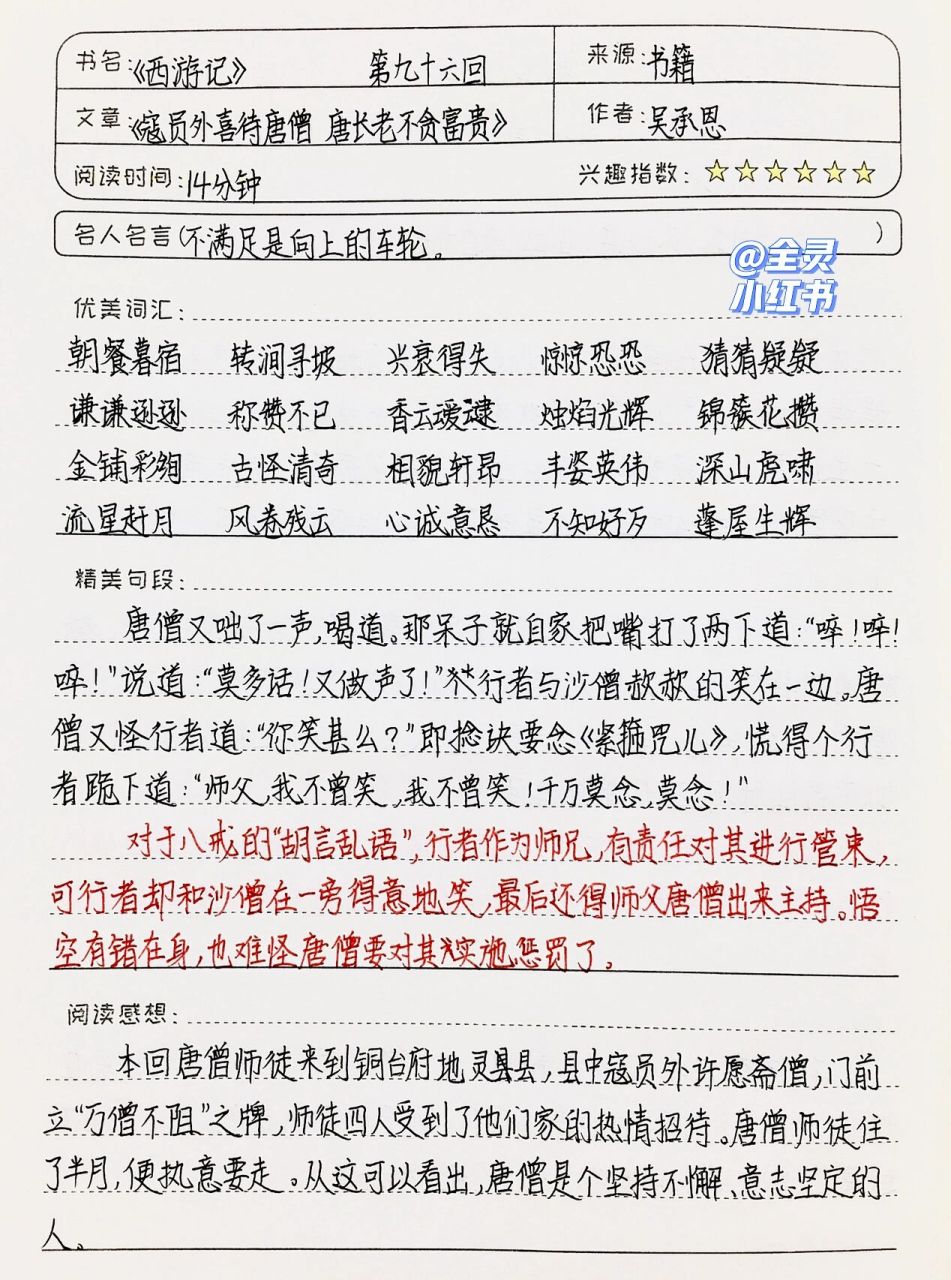 书名:《西游记》 第九十六回 来源:书籍
文章:《寇员外喜待唐僧 唐长老不贪富贵》 作者:吴承恩
阅读时间:14分钟 兴趣指数:☆☆☆☆☆☆
名人名言(不满足是向上的车轮。)
@全灵
小红书
优美词汇:
朝餐暮宿 转涧寻坡 兴衰得失 惊惊恐恐 猜猜疑疑
谦谦逊逊 称赞不已 香云叆叇 烛焰光辉 锦簇花攒
金铺彩绚 古怪清奇 相貌轩昂 丰姿英伟 深山虎啸
流星赶月 风卷残云 心诚意恳 不知好歹 蓬屋生辉
精美句段:
唐僧又咄了一声,喝道。那呆子就自家把嘴打了两下道:“啐!啐!
啐!”说道:“莫多话!又做声了!”行者与沙僧赥赥的笑在一边。唐
僧又怪行者道:“你笑甚么?”即捻诀要念《紧箍咒儿》,慌得个行
者跪下道:“师父,我不曾笑,我不曾笑!千万莫念,莫念!”
对于八戒的“胡言乱语”,行者作为师兄,有责任对其进行管束,
可行者却和沙僧在一旁得意地笑,最后还得师父唐僧出来主持。悟
空有错在身,也难怪唐僧要对其实施惩罚了。
阅读感想:
本回唐僧师徒来到铜台府地灵县县,县中寇员外许愿斋僧,门前
立“万僧不阻”之牌,师徒四人受到了他们家的热情招待。唐僧师徒住
了半月,便执意要走。从这可以看出,唐僧是个坚持不懈、意志坚定的
人。